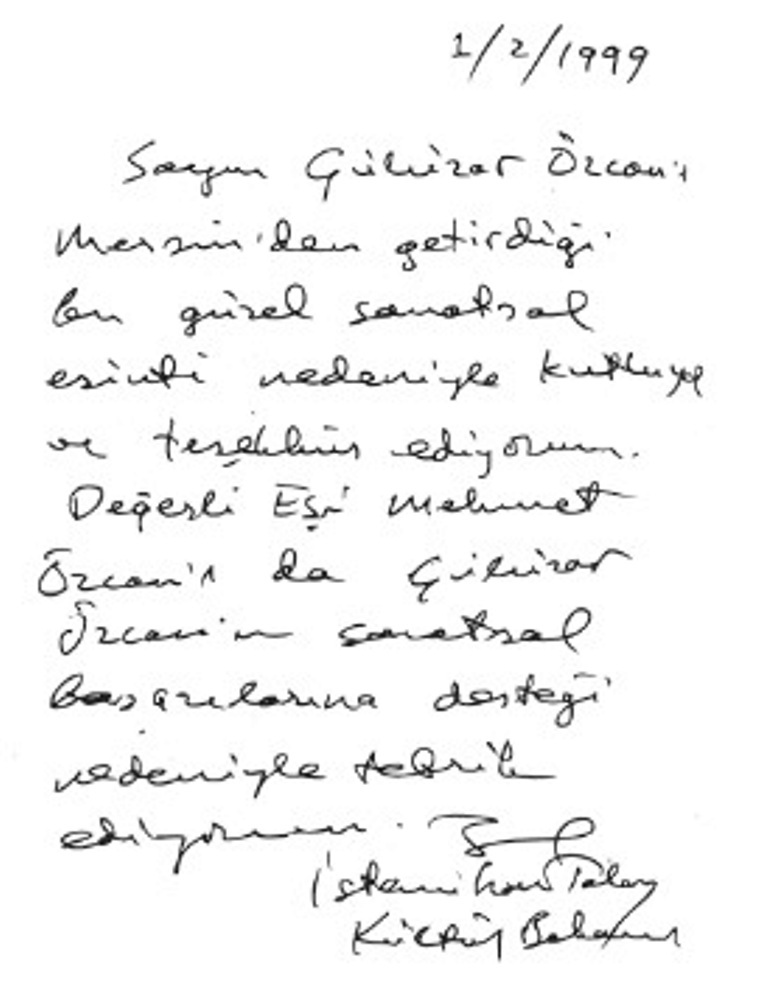 1/2/1999
Sayın Gülizar Özcan'ı
Mersin'den getirdiği
bu güzel sanatsal
esinti nedeniyle kutluyor
ve teşekkür ediyorum.
Değerli Eşi Mehmet
Özcan'ı da Gülizar
Özcan'ın sanatsal
başarılarına desteği
nedeniyle tebrik
ediyorum.
İstemihan Talay
Kültür Bakanı